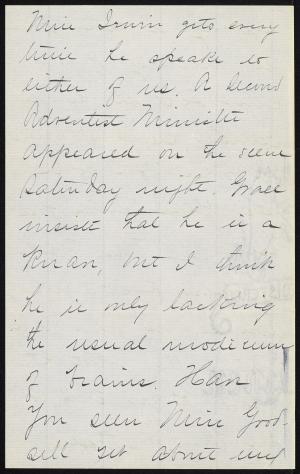 Miss Irwin gets every
time he speaks to
either of us. A Second
Adventist Minister
appeared on the scene
Saturday night. Grace
insists that he is a
but I think
he is only lacking
the usual modicum
of brains. Have
You seen Miss Good-
sell yet about